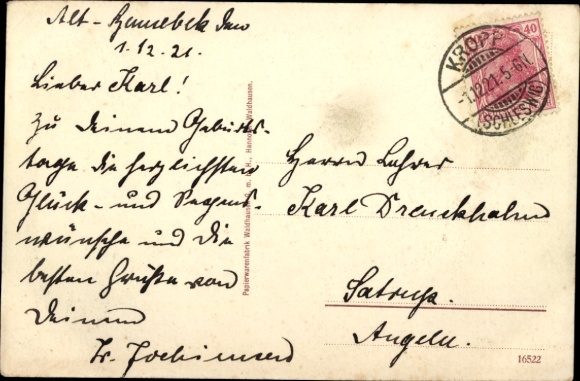 Alt-Bennebek den
1.12.21.
Lieber Karl!
Zu Deinem Geburts-
tage die herzlichsten
Glück- und Segens-
wünsche und die
besten Grüße von
Deinem
Fr. Jochimsen
Papierwarenfabrik Waldhausen G. m. b. H., Hannov.-Waldhausen.
40
KROPP
-1.12.21.5-6N.
(SCHLESWIG)
Herrn Lehrer
Karl Dreuckhahn
Satrup.
Angeln.
16522